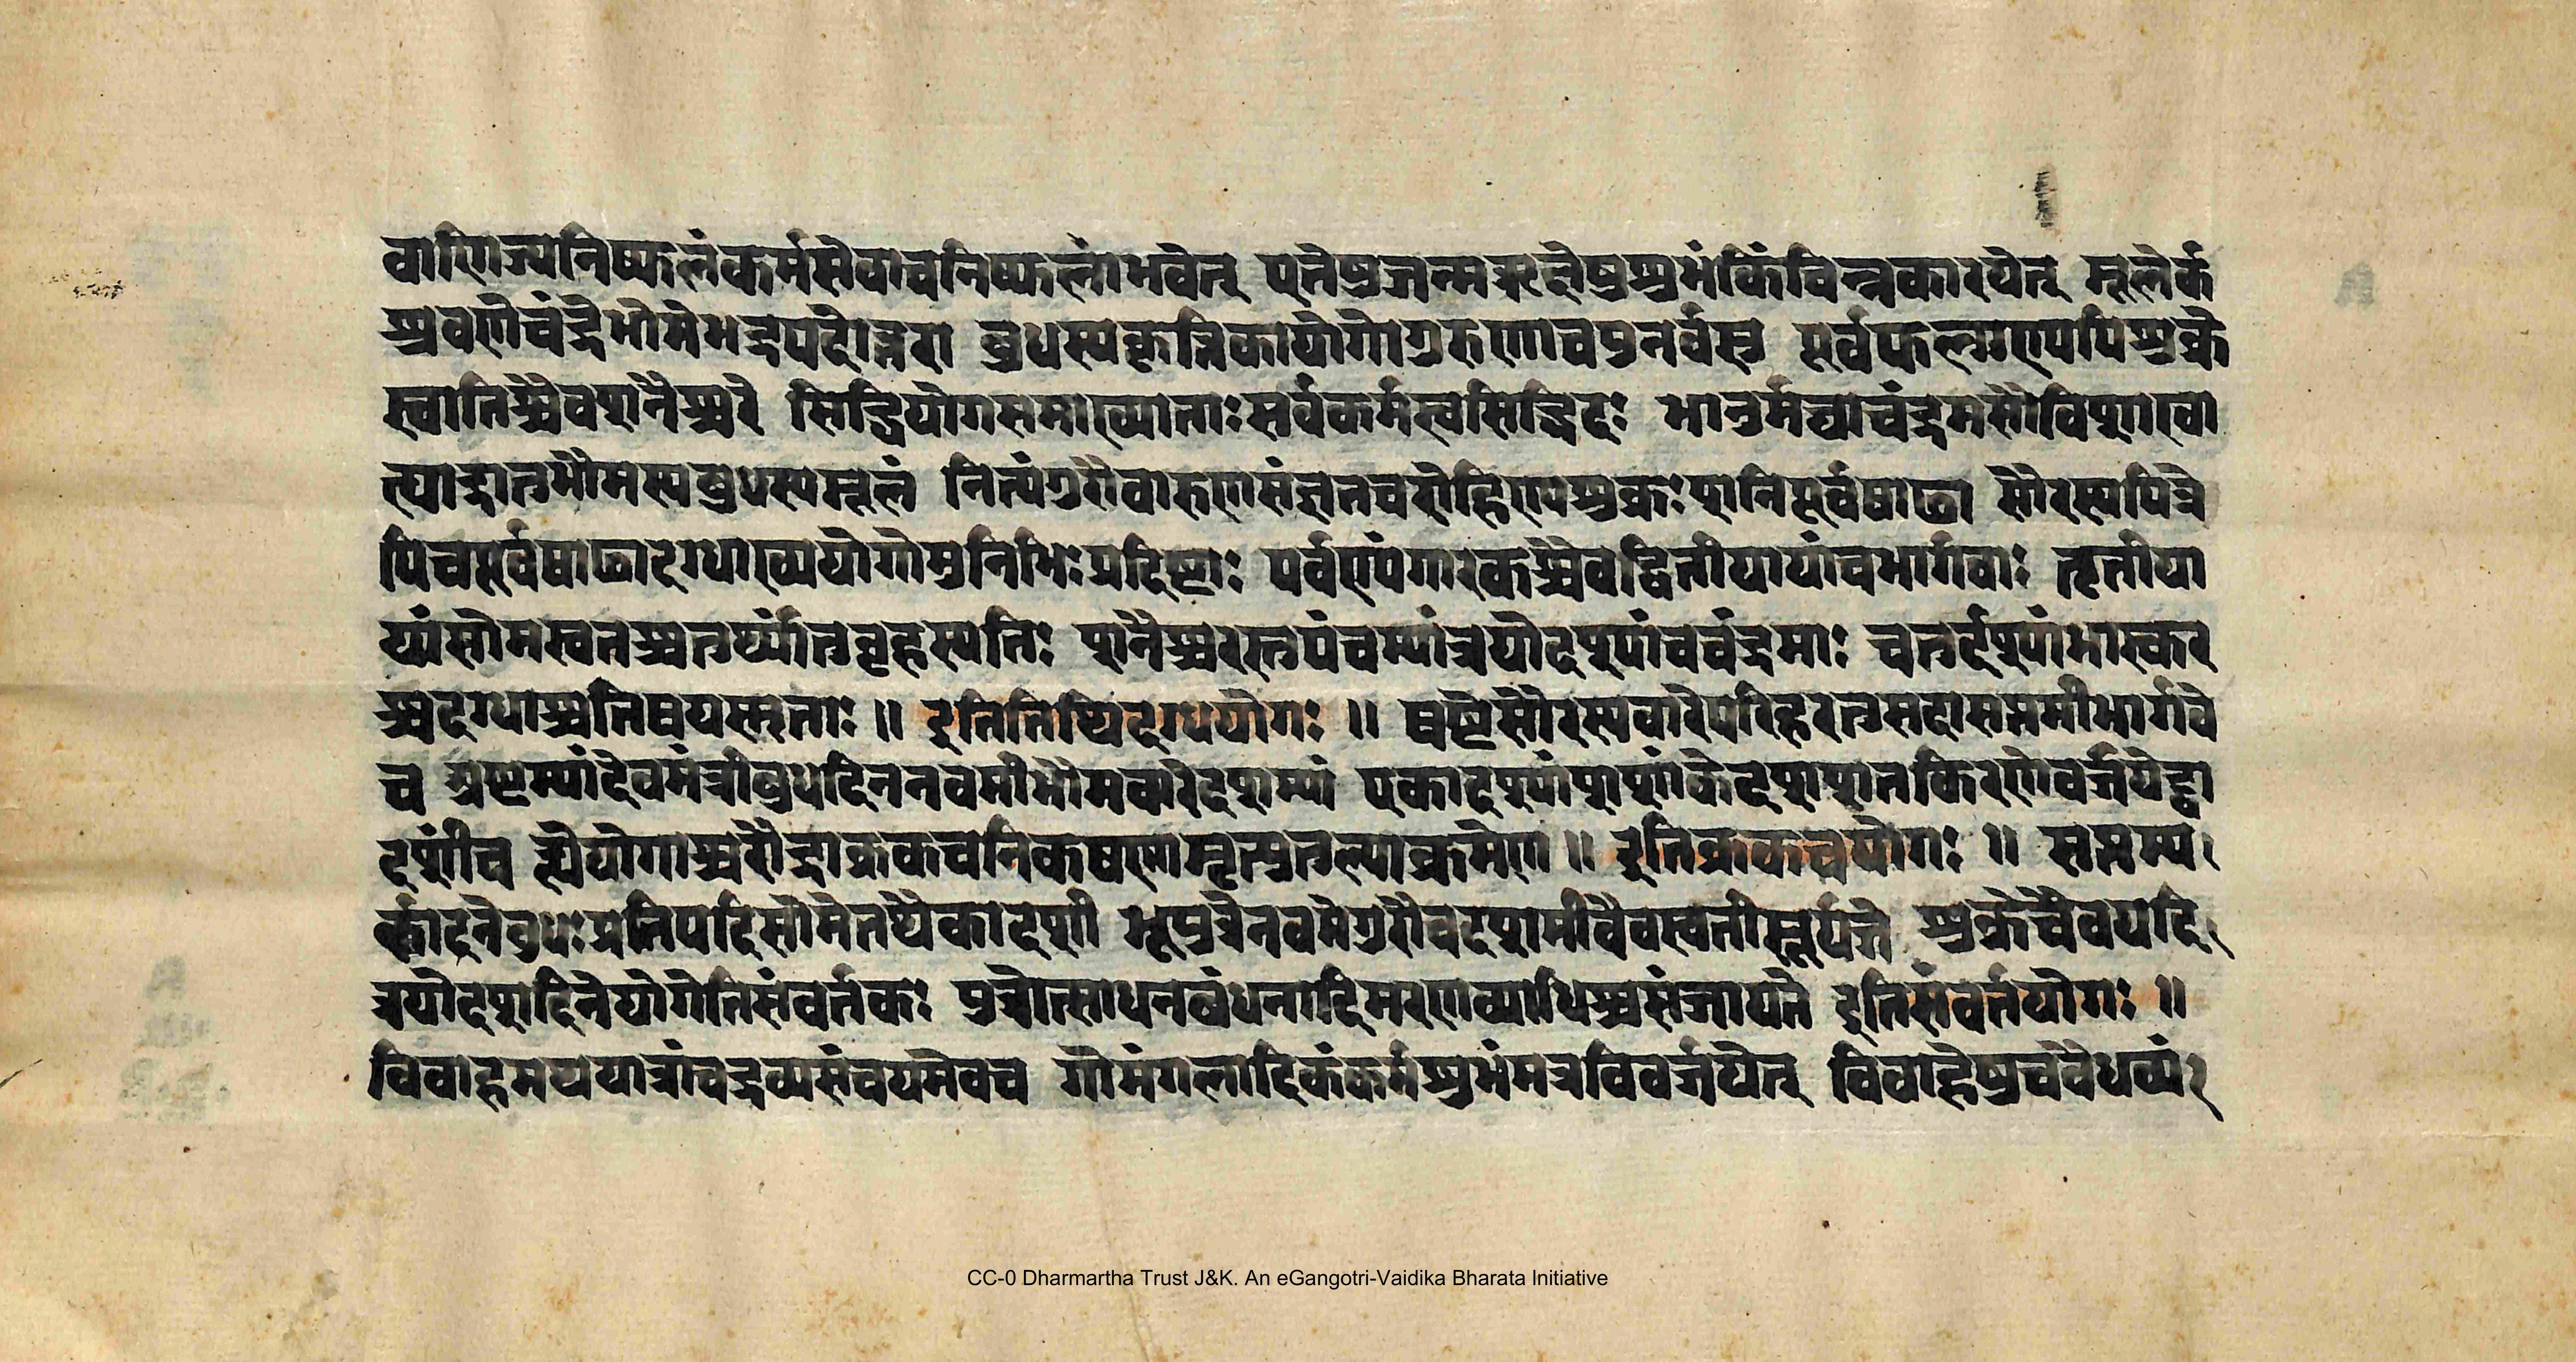 वाणिज्यनिष्फलंकर्मसेवाचनिष्फलांभवेत् एतेषुजन्मऋक्षेषुशुभंकिंचिन्नकारयेत् मूलेर्क
श्रवणेचंद्रेभौमेभद्रपदोत्तरा बुधस्यकृत्तिकायोगोगुरुणाचपुनर्वसु पूर्वफल्गुण्यपिशुक्रे
स्वातिश्चैवशनैश्चरे सिद्धियोगसमाख्याताःसर्वकर्मसुसिद्धिदः भानुर्मघाचंद्रमसौविशाखा
त्याद्रातुभौमस्यबुधस्यमूलं नित्यंगुरौवारुणसंज्ञतचरोहिण्यशुक्रःशनिपूर्वषाढा सौरस्यपित्रे
पिचपूर्वषाढादग्धाख्ययोगोमुनिभिःप्रदिष्टाः पर्वण्यंगारकश्चैवद्वितीयायांचभार्गवाः तृतीया
यांसोमसुतश्चतुर्थ्यांतुबृहस्पतिः शनैश्चरस्तुपंचम्यांत्रयोदश्यांचचंद्रमाः चतुर्दश्यांभास्कर
श्चदग्धाश्चतिथयस्मृताः ॥ इतितिथिदग्धयोगः ॥ षष्टेसौरस्यवारेपरिहरतुसदासप्तमीभार्गवे
च अष्टम्यांदेवमंत्रीबुधदिननवमीभौमवारेदशम्यां एकादश्यांशशांकेदशशतकिरणेवर्जयेद्द्वा
दशींच ह्येयोगाश्चरौद्राक्रकचनिकषणामृत्युतुल्याक्रमेण ॥ इतिक्रकचयोगः ॥ सप्तम्य
र्कदिनेबुधःप्रतिपदिसोमेतथैकादशी भूपुत्रेनवमेगुरौचदशमीवैवस्वतीसूर्यजे शुक्रेचैवयदि
त्रयोदशदिनेयोगेतिसंवर्तकः पुत्रोत्साधनबंधनादिमरणव्याधिश्चसंजायते इतिसंवर्तयोगः ॥
विवाहमथयात्रांचद्रव्यसंचयमेवच गोमंगलादिकंकर्मशुभंमत्रविवर्जयेत् विवाहेषुचवैधव्यं
CC-0 Dharmartha Trust J&K. An eGangotri-Vaidika Bharata Initiative